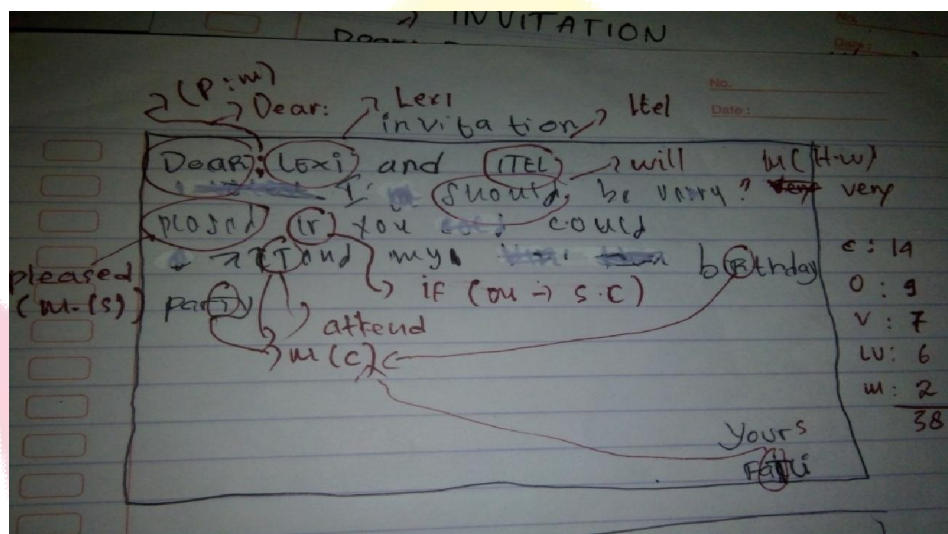 INVITATION
Dear:
No.
Date:
(P:m)
Dear:
Lexi
invitation
Itel
No.
Date:
Dear: Lexi and ITEL
will
m(H-w)
I should be verry?
very
plased if you could
aTTand my birthday
pleased
(m-(s)
if (ou → s.c)
party
attend
m(c)
c: 14
O: 9
V: 7
LU: 6
m: 2
38
Yours